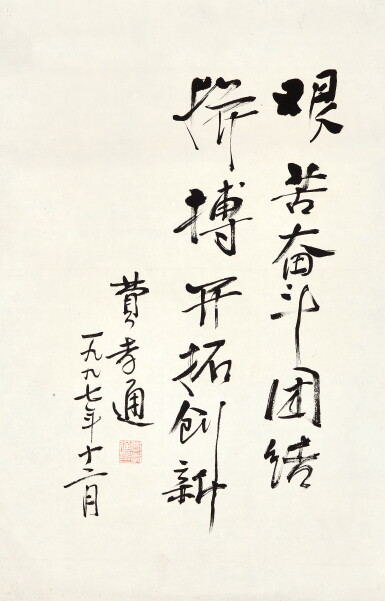 艰苦奋斗团结
拼搏开拓创新
费孝通
一九九七年十二月